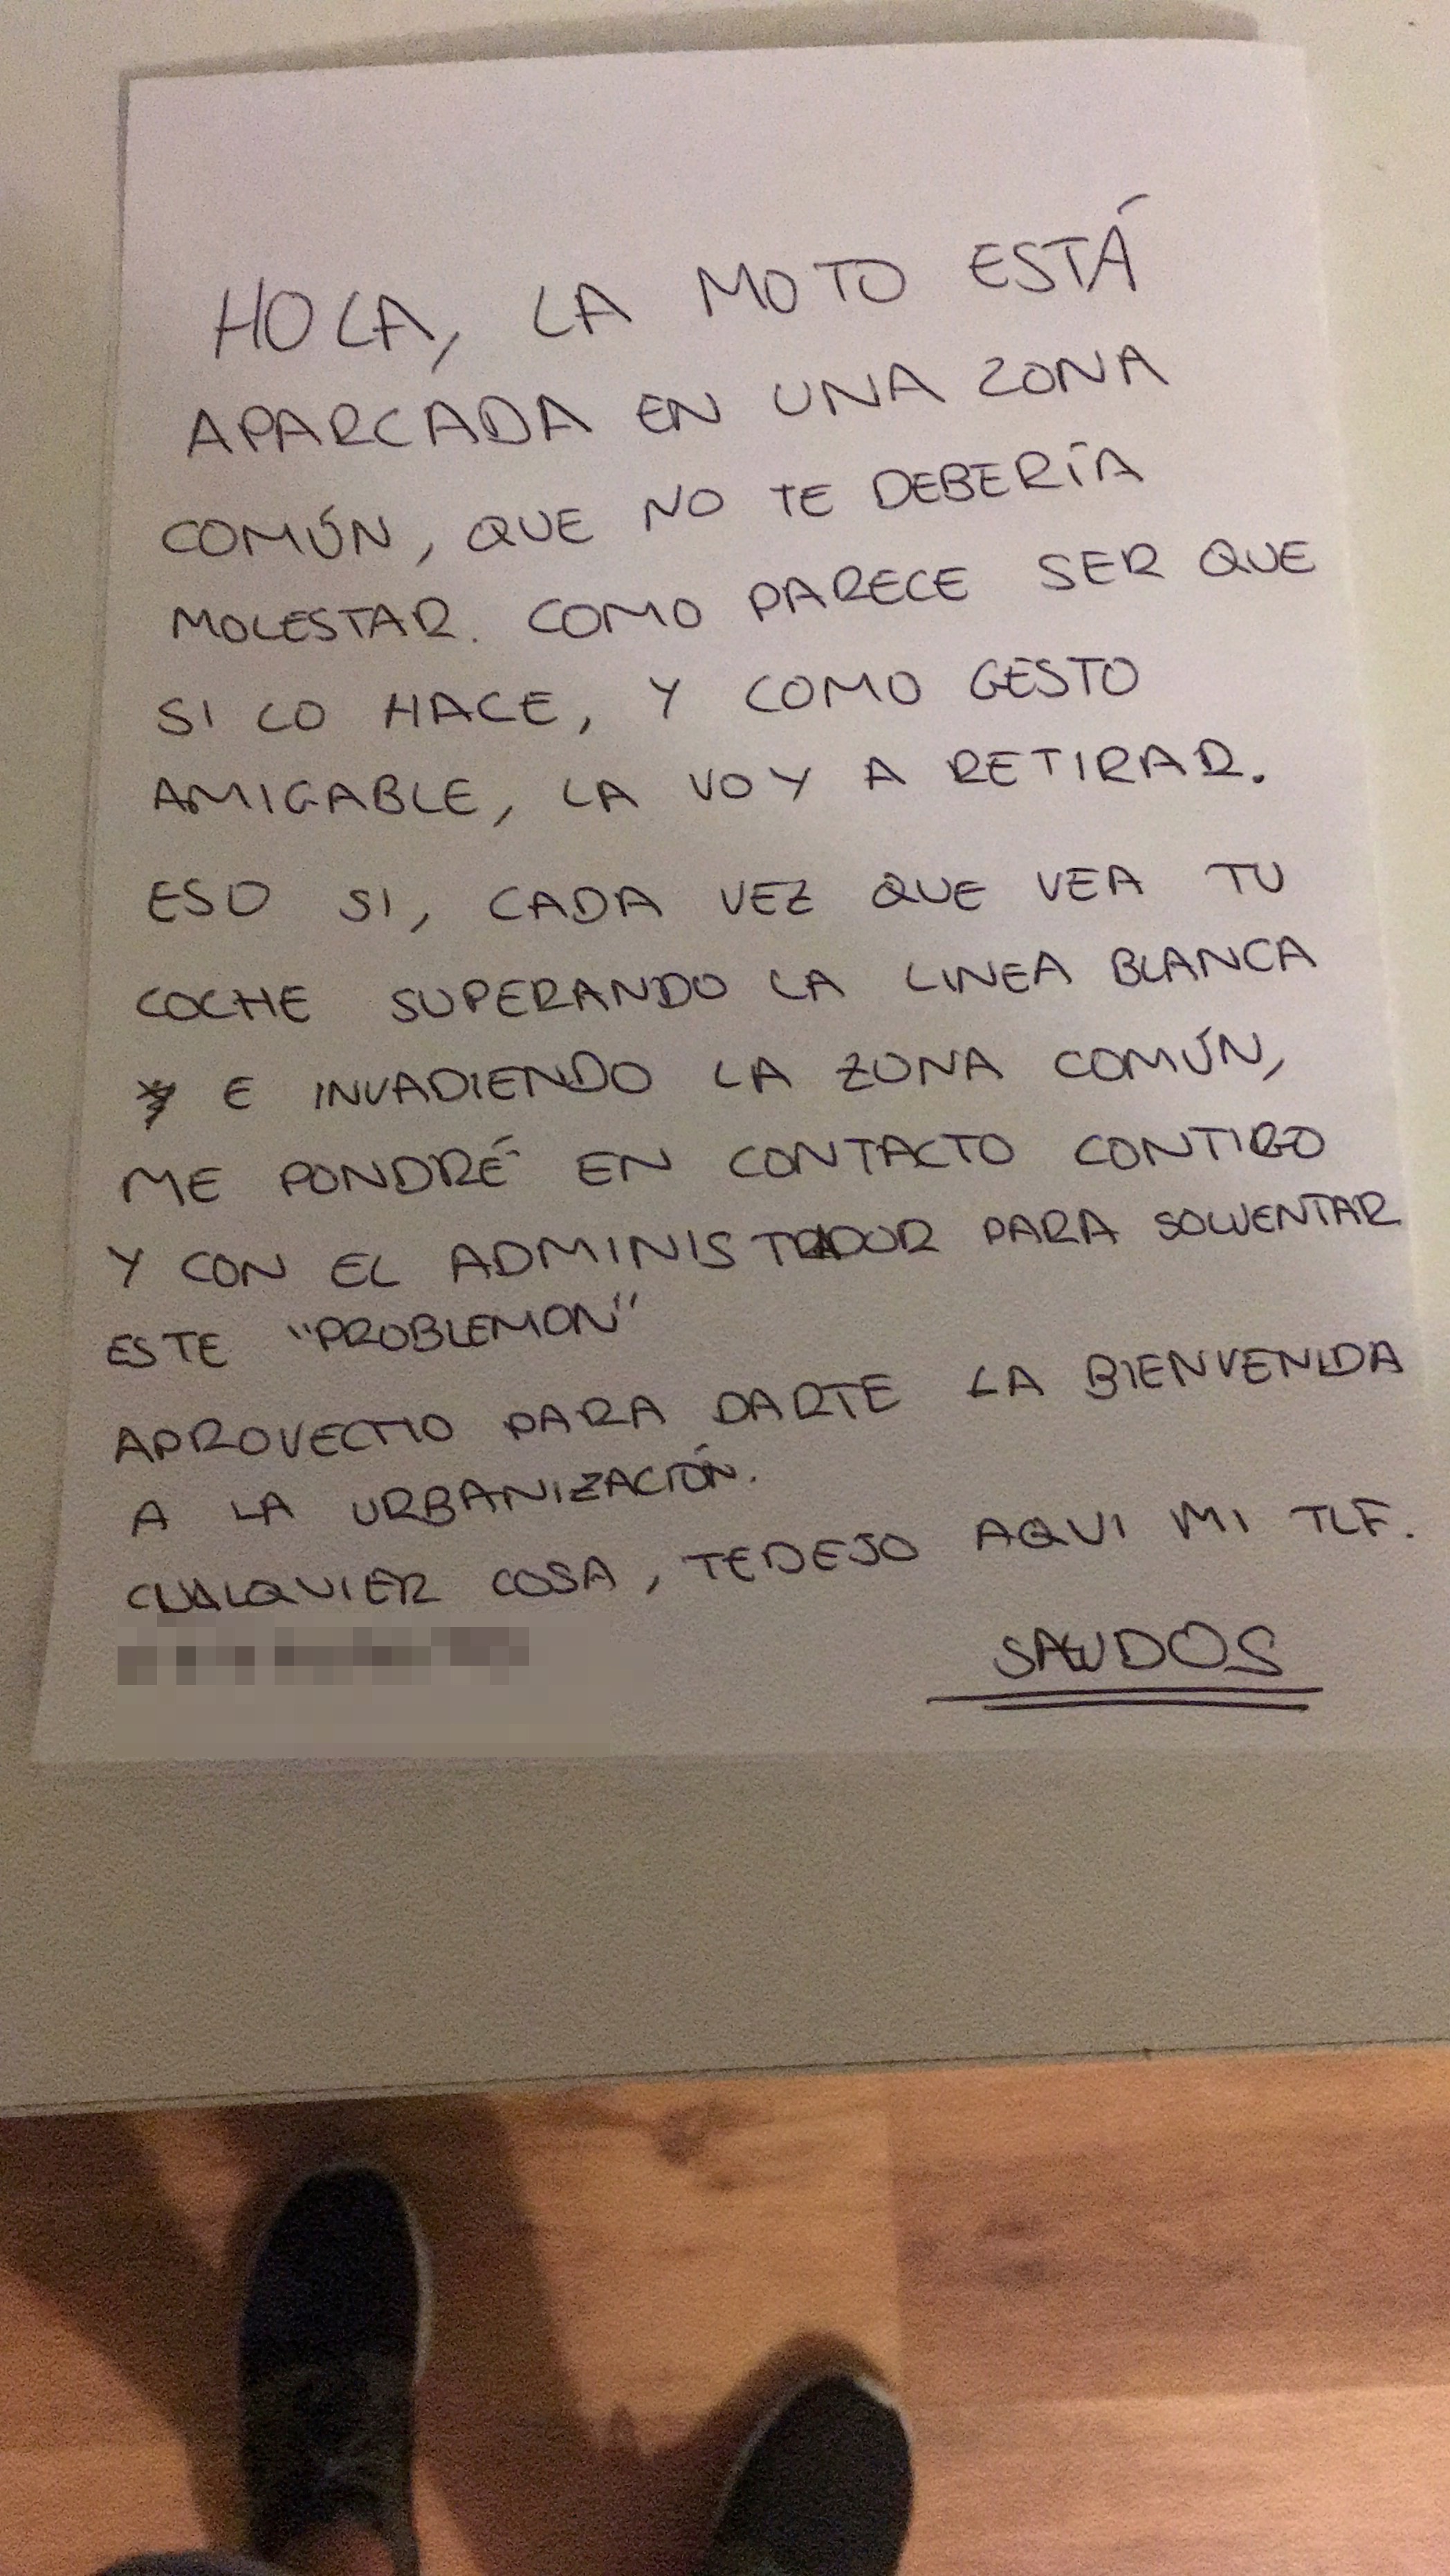 HOLA, LA MOTO ESTÁ
APARCADA EN UNA ZONA
COMÚN, QUE NO TE DEBERÍA
MOLESTAR. COMO PARECE SER QUE
SI LO HACE, Y COMO GESTO
AMIGABLE, LA VOY A RETIRAR.
ESO SI, CADA VEZ QUE VEA TU
COCHE SUPERANDO LA LINEA BLANCA
E INVADIENDO LA ZONA COMÚN,
ME PONDRÉ EN CONTACTO CONTIGO
Y CON EL ADMINISTRADOR PARA SOLVENTAR
ESTE "PROBLEMON"
APROVECHO PARA DARTE LA BIENVENIDA
A LA URBANIZACIÓN.
CUALQUIER COSA, TE DEJO AQUI MI TLF.
SALUDOS